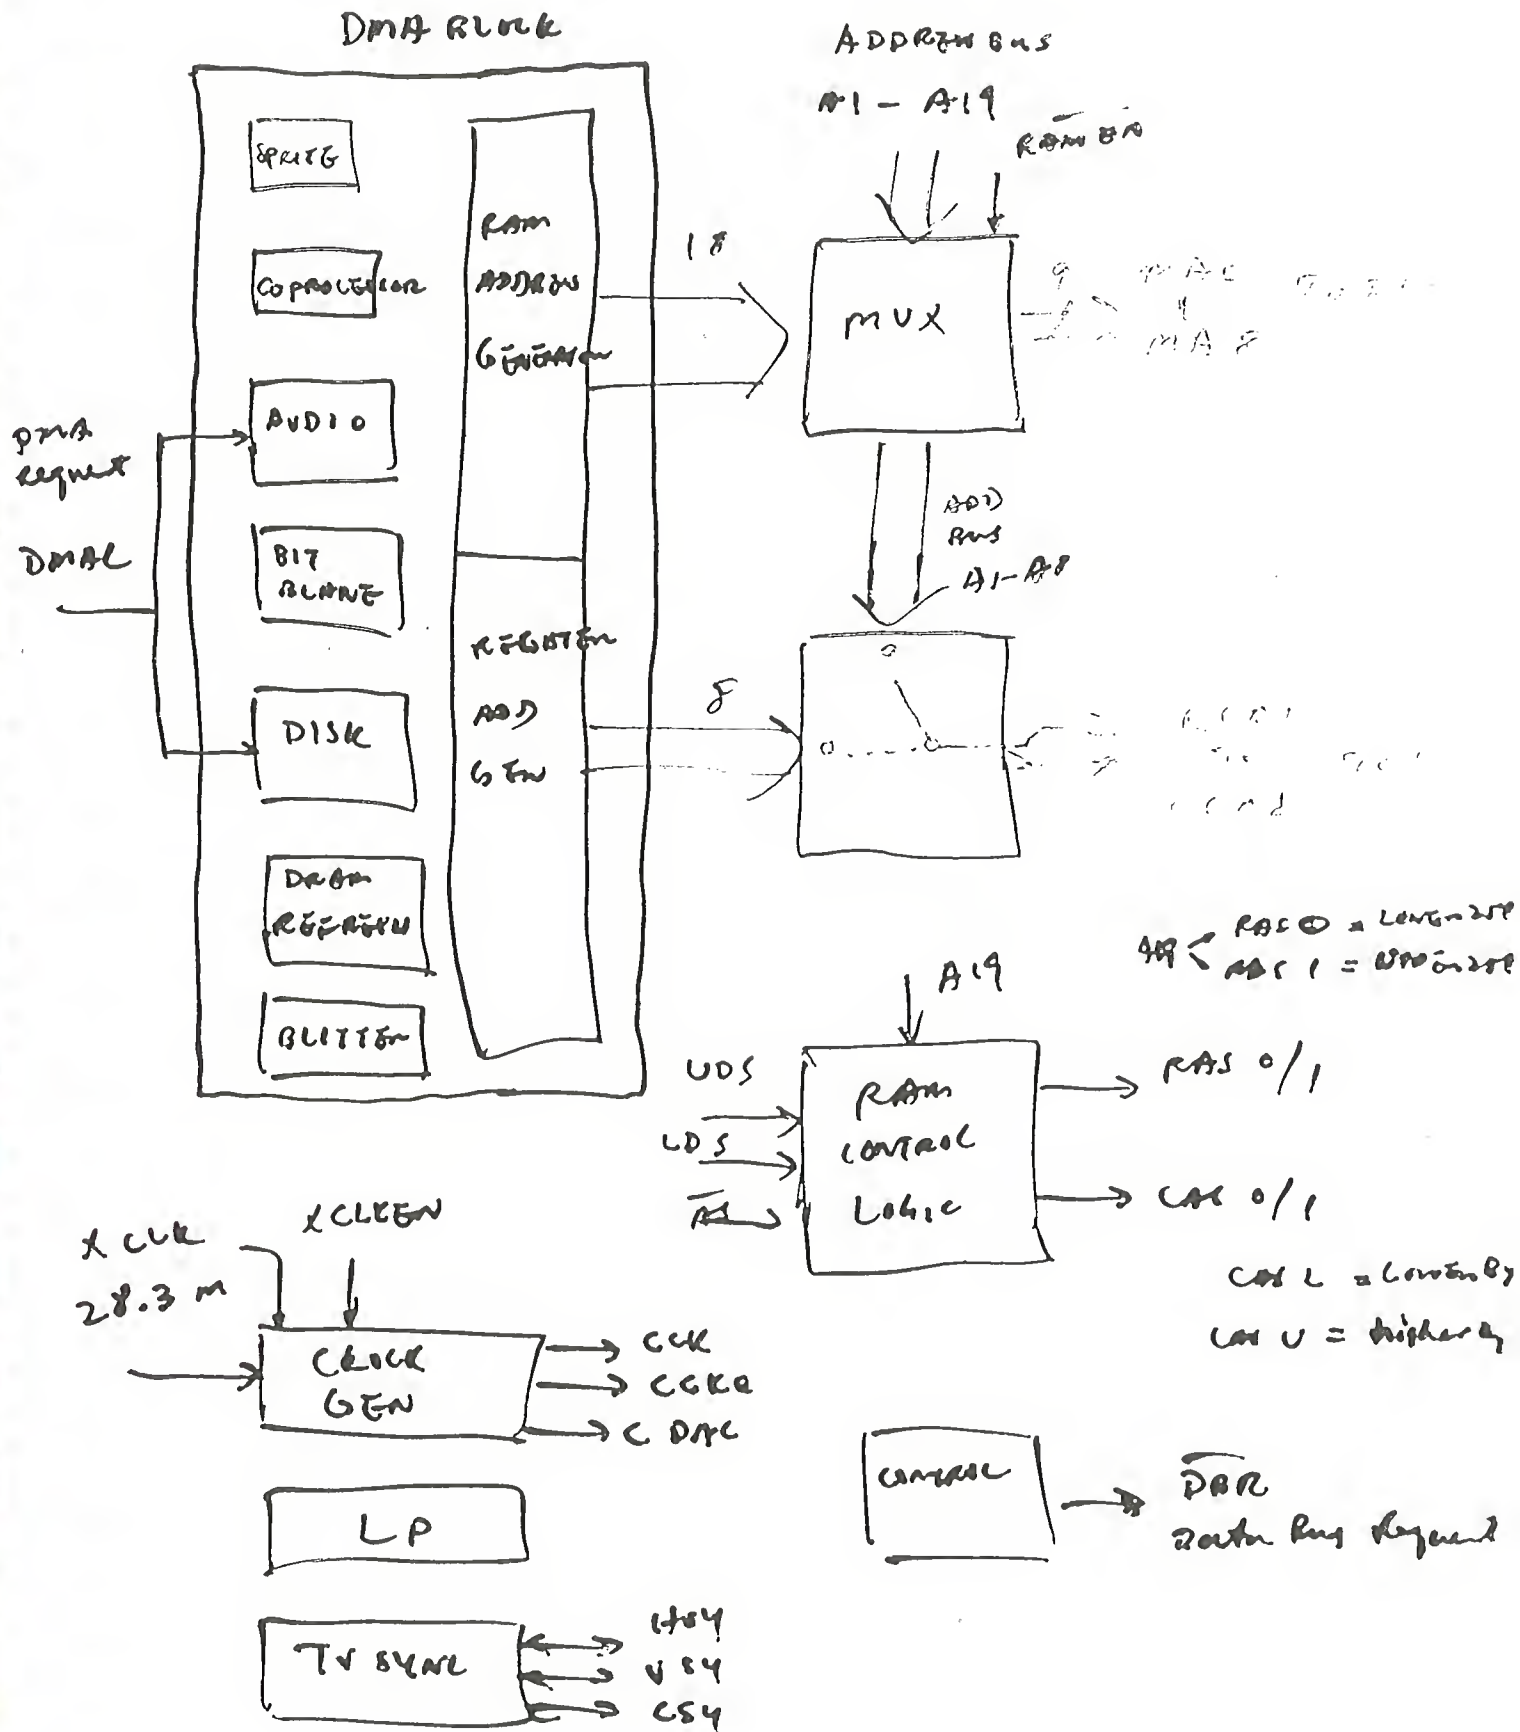 DMA BLOCK
ADDRESS BUS
A1 - A19
RAMEN
SPRITE
COPROCESSOR
AUDIO
BIT
BLANE
DISK
DRAM
REFRESH
BLITTER
RAM
ADDRESS
GENERATOR
REGISTER
ADD
GEN
DMA
request
DMAL
18
MUX
9
MA0
MA8
ADD
BUS
A1-A8
8
A19
A19 < RAS 0 = LOWER 256
RAS 1 = UPPER 256
UDS
LDS
AS
RAM
CONTROL
LOGIC
RAS 0/1
CAS 0/1
CAS L = Lower By
CAS U = Higher By
XCLK
28.3 M
XCLKEN
CLOCK
GEN
CCK
CCKQ
CDAC
LP
TV SYNC
HSY
VSY
CSY
CONTROL
DBR
Data Bus Request